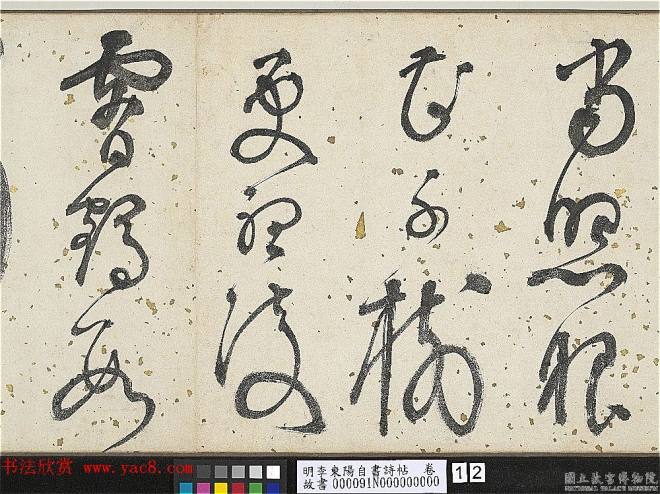 當照眼
花千樹
更
凌
霄鶴
书法欣赏 www.yac8.com
明李東陽自書詩帖 卷
故書 000091N000000000
12
國立故宮博物院
NATIONAL PALACE MUSEUM